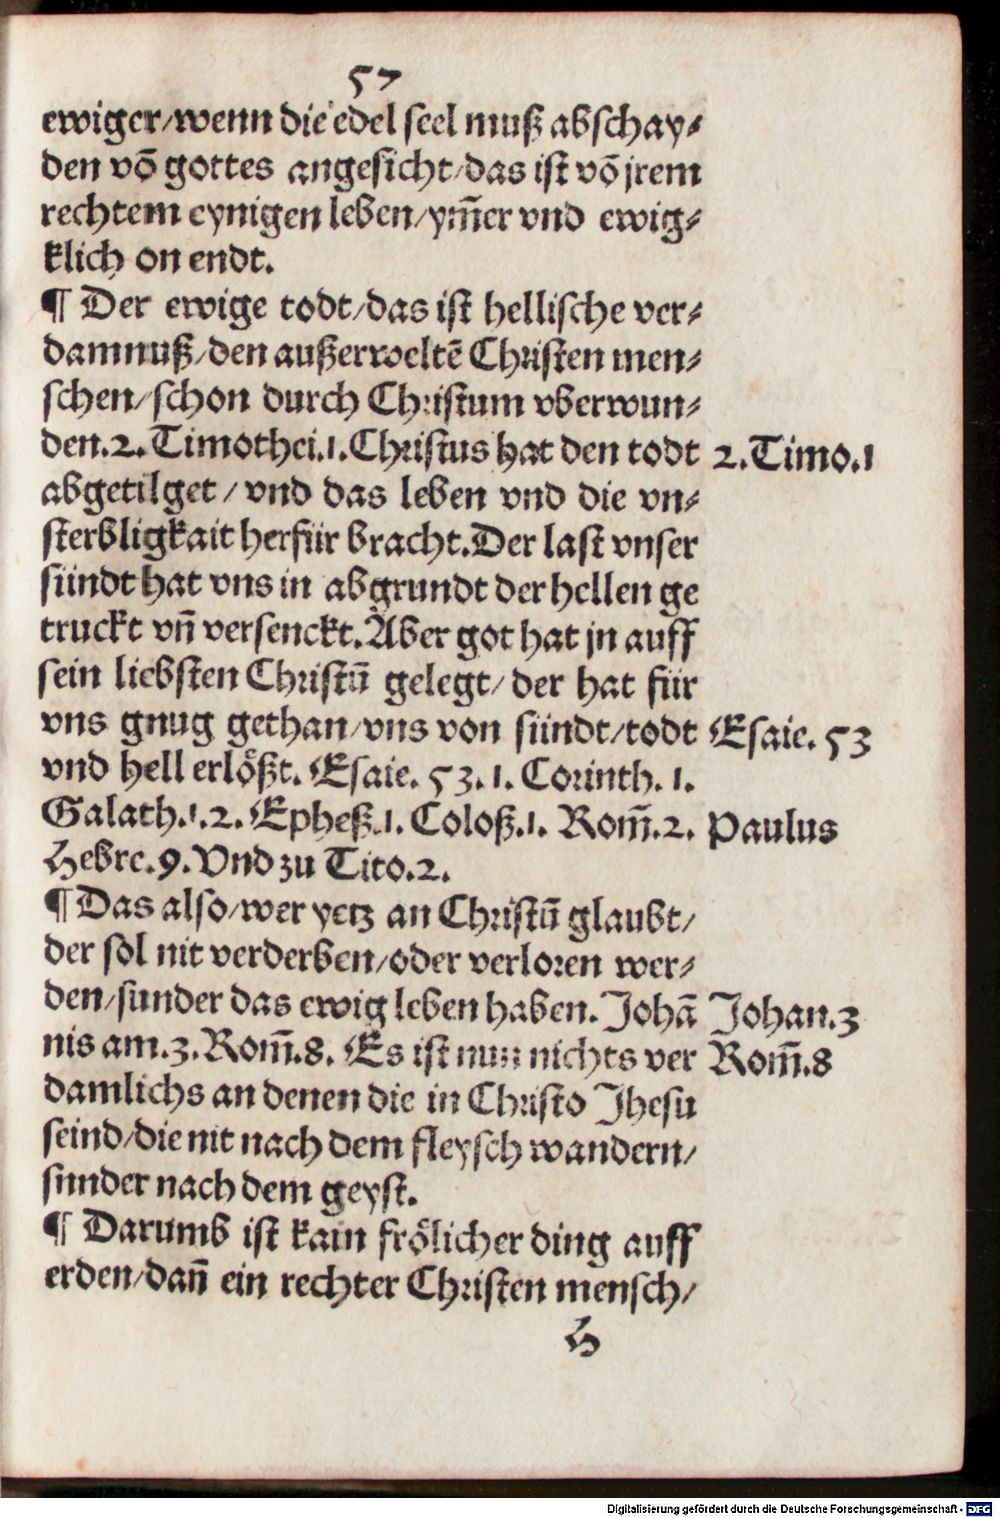 57
ewiger/wenn die edel seel muß abschay⸗
den võ gottes angesicht/das ist võ jrem
rechtem eynigen leben/ym̃er vnd ewig⸗
klich on endt.
¶ Der ewige todt/das ist hellische ver⸗
damnuß/den außerweltẽ Christen men⸗
schen/schon durch Christum vberwun⸗
den.2.Timothei.1.Christus hat den todt 2.Timo.1
abgetilget/vnd das leben vnd die vn⸗
sterbligkait herfür bracht.Der last vnser
sündt hat vns in abgrundt der hellen ge
truckt vñ versenckt.Aber got hat jn auff
sein liebsten Christũ gelegt/der hat für
vns gnug gethan/vns von sündt/todt Esaie. 53
vnd hell erlößt. Esaie. 53.1. Corinth. 1.
Galath.1.2. Epheß.1. Coloß.1. Rom̃.2. Paulus
Hebre.9.Vnd zu Tito.2.
¶Das also/wer yetz an Christũ glaubt/
der sol nit verderben/oder verloren wer⸗
den/sunder das ewig leben haben. Johã Johan.3
nis am.3.Rom̃.8. Es ist nun nichts ver Rom̃.8
damlichs an denen die in Christo Jhesu
seind/die nit nach dem fleysch wandern/
sunder nach dem geyst.
¶ Darumb ist kain frölicher ding auff
erden/dañ ein rechter Christen mensch/
H
Digitalisierung gefördert durch die Deutsche Forschungsgemeinschaft - DFG